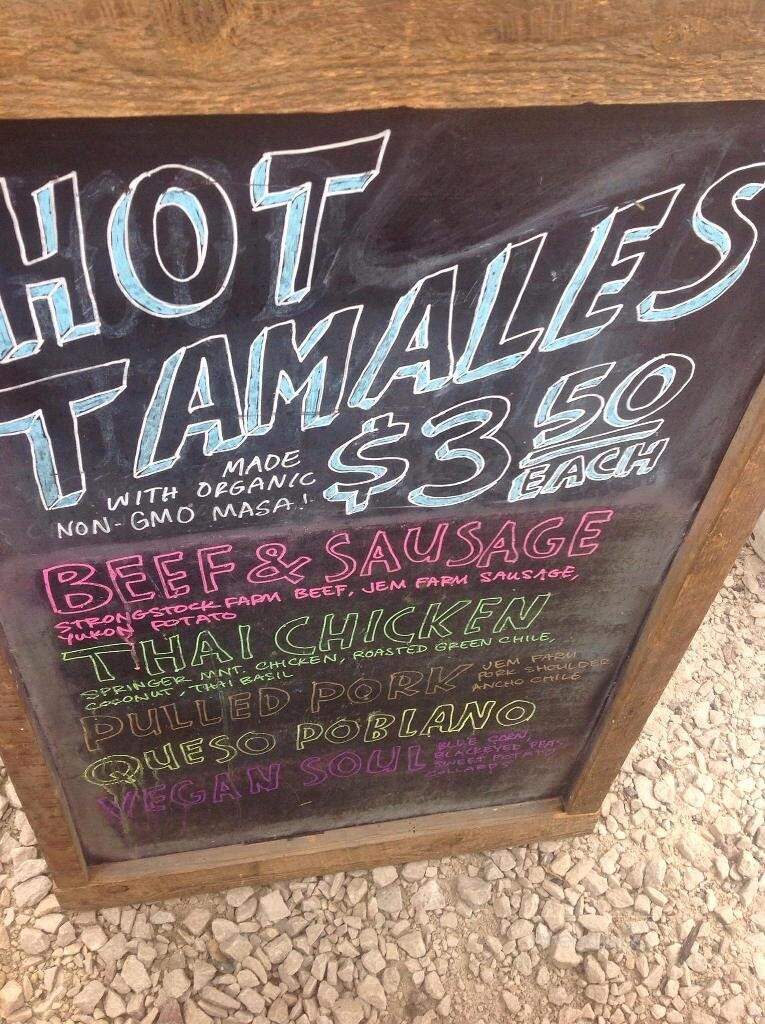 HOT
TAMALES
$3 50
EACH
MADE
WITH ORGANIC
NON-GMO MASA!
BEEF & SAUSAGE
STRONGSTOCK FARM BEEF, JEM FARM SAUSAGE,
YUKON POTATO
THAI CHICKEN
SPRINGER MNT. CHICKEN, ROASTED GREEN CHILE,
COCONUT, THAI BASIL
PULLED PORK
JEM FARM
PORK SHOULDER
ANCHO CHILE
QUESO POBLANO
VEGAN SOUL
BLUE CORN,
BLACKEYED PEAS,
SWEET POTATO,
COLLARDS